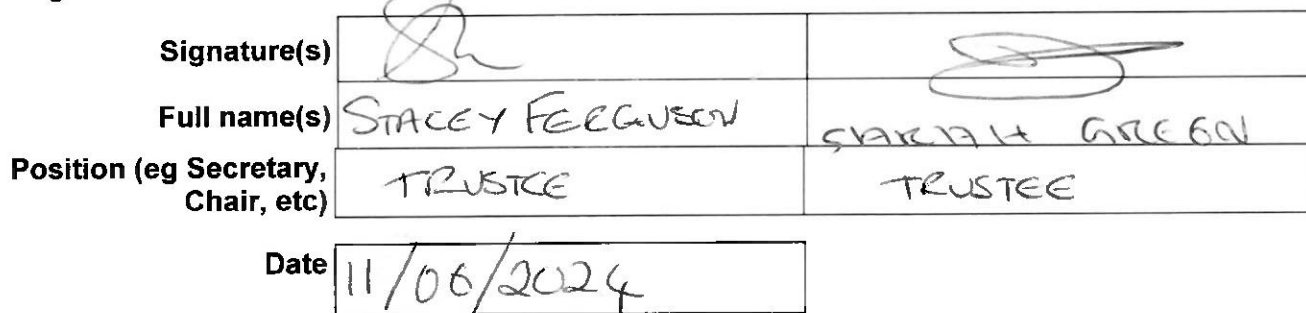 Signature(s)
Full name(s) STACEY FERGUSON SARAH GREEN
Position (eg Secretary, TRUSTEE TRUSTEE
Chair, etc)
Date 11/06/2024